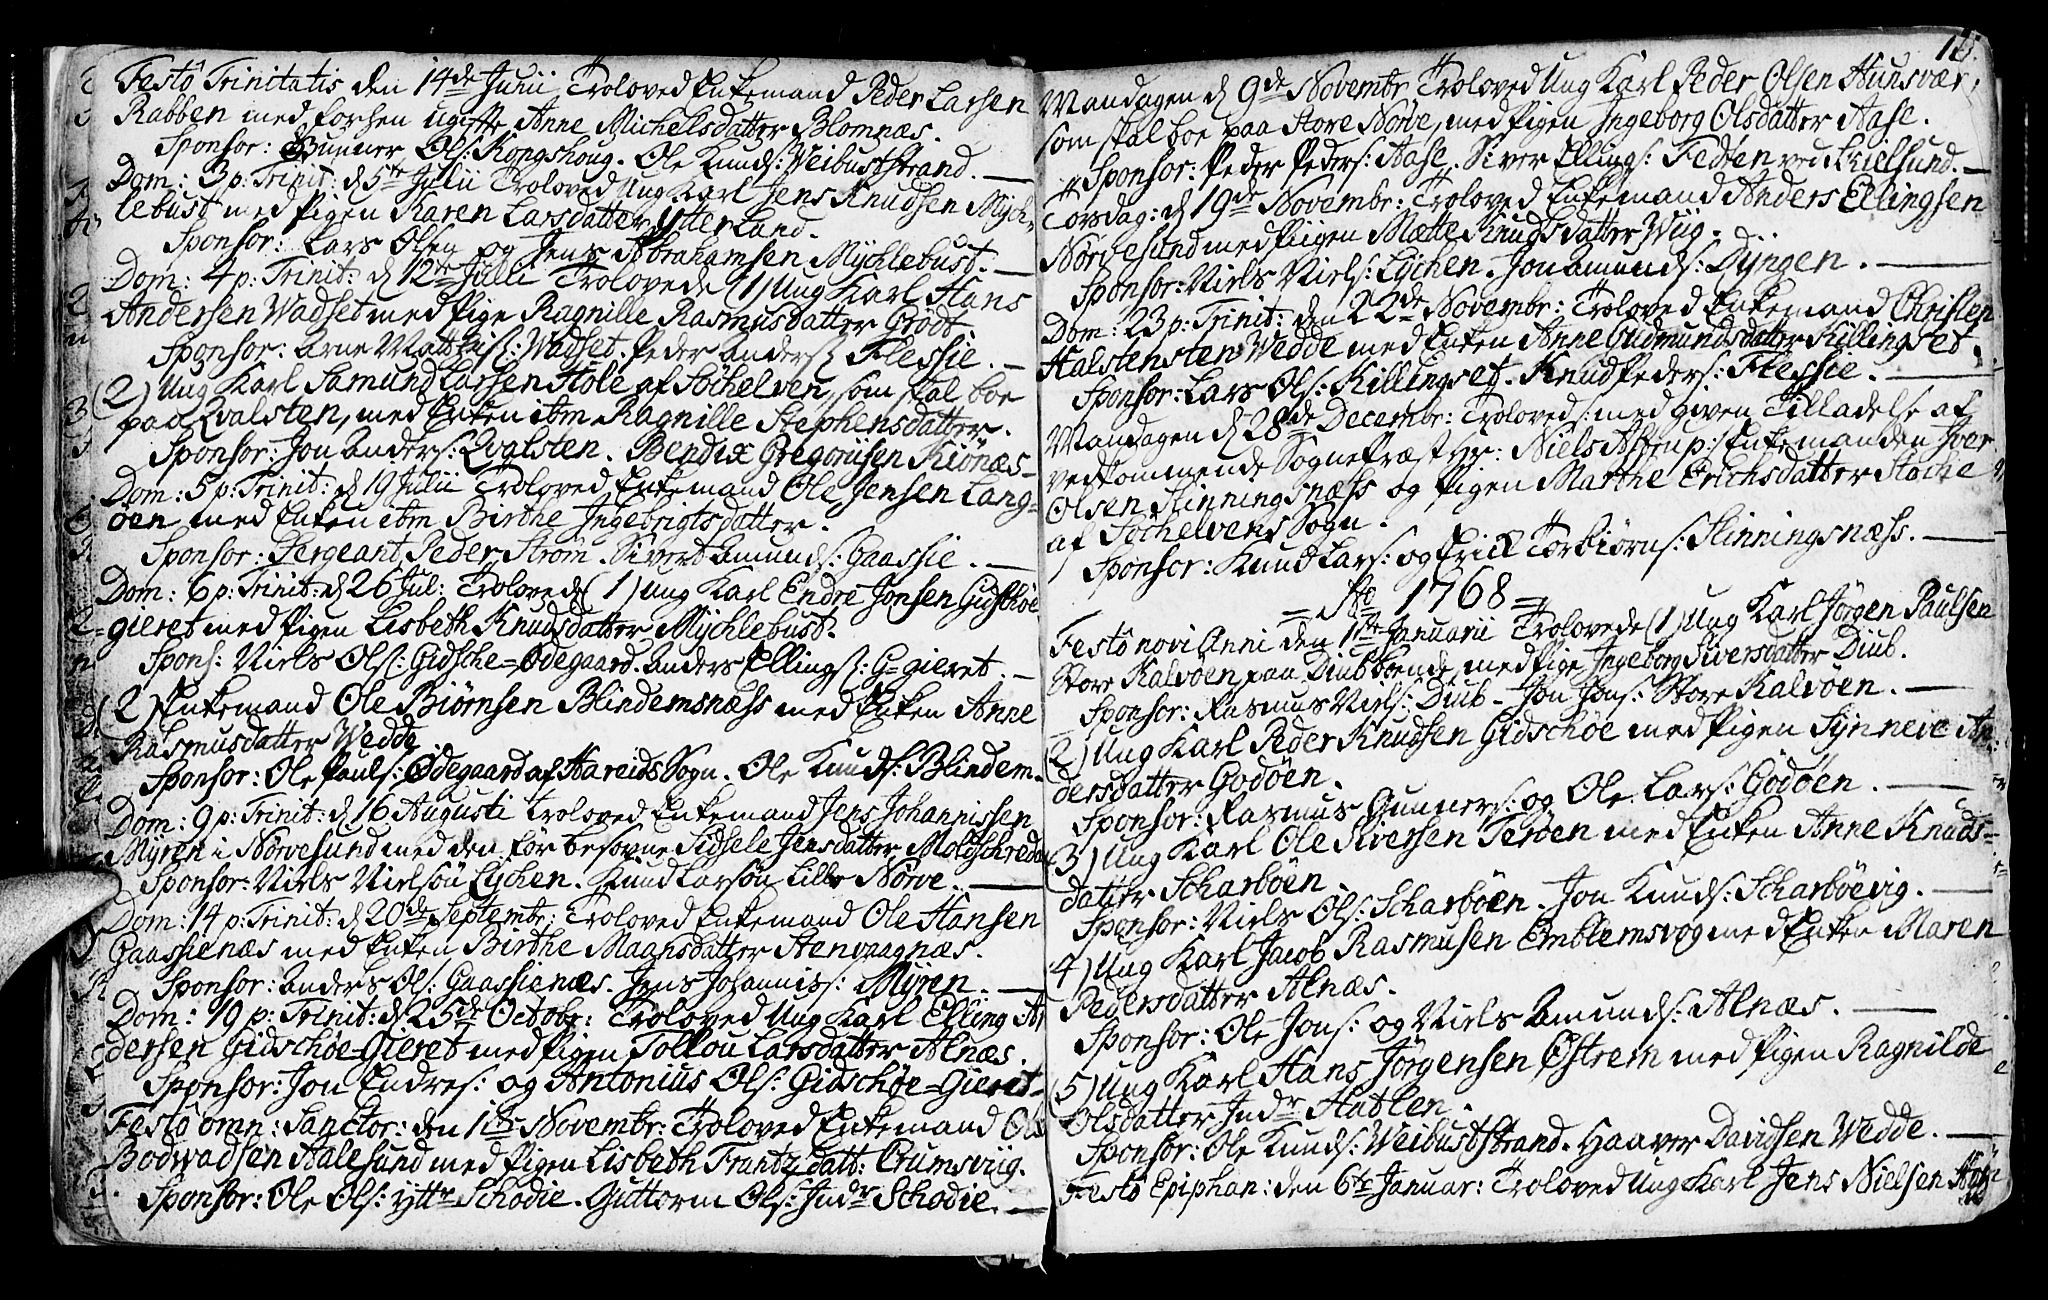 Festô Trinitatis den 14de Junii Troloved Enkemand Peder Larsen
Rabben med forhen ugifte Anne Michelsdatter Blomnæs.
Sponsor: Gunner Ols: Kongshoug. Ole Knuds: Veibuststrand.
Dom: 3 p: Trinit: d 5te Julii Troloved Ung Karl Jens Knudsen Mych-
lebust med Pigen Karen Larsdatter Ytterland.
Sponsor: Lars Olsen og Jens Abrahamsen Mychlebust.
Dom: 4 p: Trinit: d 12te Julii Trolovede (1) Ung Karl Hans
Andersen Wadset med Pige Ragnille Rasmusdatter Grödt.
Sponsor: Arne Matthis: Wadset. Peder Anders: Flessie.
(2) Ung Karl Samund Larsen Hole af Söchelven, som skal boe
paa Qvalsten, med Enken ibm Ragnille Stephensdatter.
Sponsor: Jon Anders: Qvalsten. Bendix Gregoriisen Kiönæs-
Dom: 5 p: Trinit: d 19 Julii Troloved Enkemand Ole Jensen Lang-
öen med Enken ibm Birthe Ingebrigtsdatter.
Sponsor: Sergeant Peder Ström. Sivert Amunds: Gaassie.
Dom: 6 p: Trinit: d 26 Jul: Trolovede (1) Ung Karl Endre Jonsen Gidschöe
gieret med Pigen Lisbeth Knudsdatter Mychlebust.
Spons: Niels Ols: Gidsche=Ödegaard. Anders Ellings: G=gieret.
(2) Enkemand Ole Biörnsen Blindemsnæss med Enken Anne
Rasmusdatter Wedde
Sponsor: Ole Pauls: Ödegaard af Hareids Sogn. Ole Knuds: Blindem.
Dom: 9 p: Trinit: d 16 Augusti troloved Enkemand Jens Johannissen
Myren i Nörvesund med den för besovne Sidsele Jensdatter Moldschreda
Sponsor: Niels Nielsön Lychen. Knud Larsön Lille Nörve.
Dom: 14 p: Trinit: d 20de Septembr: Troloved Enkemand Ole Hansen
Gaassienæs med Enken Birthe Maansdatter Stenvaagnæs.
Sponsor: Anders Ols: Gaassienæs. Jens Johannis: Myren.
Dom: 19 p: Trinit: d 25de Octobr: Troloved Ung Karl Elling An
dersen Gidschöe=Gieret med Pigen Tollou Larsdatter Alnæs.
Sponsor: Jon Endres: og Antonius Ols: Gidschöe=Gieret
Festô omn: Sanctor: den 1ste Novembr: Troloved Enkemand Ole
Bodwadsen Aalesund med Pigen Lisbeth Frantzdatt: Crumsviig.
Sponsor: Ole Ols: yttr Schodie. Guttorm Ols: Indr Schodie.
Mandagen d 9de Novembr Troloved Ung Karl Peder Olsen Hunsvær
som skal boe paa Store Nörve, med Pigen Ingeborg Olsdatter Aase.
Sponsor: Peder Peders: Aase. Siver Ellings: Fedöen ved Leielsund.
Torsdag: d 19de Novembr: Troloved Enkemand Anders Ellingsen
Nörvesund med Piigen Mætte Knudsdatter Wiig.
Sponsor: Niels Niels: Lychen. Jon Amunds: Dyngen.
Dom: 23 p: Trinit: den 22de Novembr: Troloved Enkemand Christen
Halstensten Wedde med Enken Anne Gudmundsdatter Killingset.
Sponsor: Lars Ols: Killingset. Knud Peders: Flessie.
Mandagen d 28de Decembr: Troloved: med given Tilladelse af
vedkommende Sognepræst Hr: Niels Astrup: Enkemanden Iver
Olsen Slinningsnæss og Pigen Marthe Erichsdatter Hoche
af Söchelvens Sogn.
Sponsor: Knud Lars: og Erick Torbiörns: Slinningsnæss.
Ao 1768
Festô novi Anni den 1ste Januarii Trolovede (1) Ung Karl Jörgen Paulsen
Store Kalvöen paa Diub boende med Pige Ingeborg Siversdatter Diub.
Sponsor: Rasmus Niels: Diub - Jon Jons: Store Kalvöen.
(2) Ung Karl Peder Knudsen Gidschöe med Pigen Synneve An
dersdatter Godöen.
Sponsor: Rasmus Gunners: og Ole Lars: Godöen.
(3) Ung Karl Ole Siversen Teröen med Enken Anne Knuds-
datter Scharböen.
Sponsor: Niels Ols: Scharböen. Jon Knuds: Scharböevig.
4) Ung Karl Jacob Rasmusen Emblemsvog med Enken Maren
Pedersdatter Alnæs.
Sponsor: Ole Jons: og Niels Amunds: Alnæs.
(5) Ung Karl Hans Jörgensen Östrem med Pigen Ragnilde
Olsdatter Indr Hatlen.
Sponsor: Ole Knuds: Weibuststrand. Haaver Davidsen Wedde.
Festô Epiphan: den 6te Januar: Troloved Ung Karl Jens Nielsen